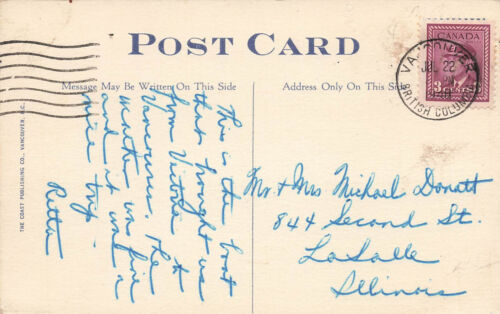 POST CARD
Message May Be Written On This Side
Address Only On This Side
CANADA
3 CENTS 3
VANCOUVER
JUL 22
BRITISH COLUMBIA
THE COAST PUBLISHING CO., VANCOUVER, B.C.
This is the boat
that brought us
from Victoria to
Vancouver. The
weather was fine
and it was a
nice trip.
Retta
Mr. & Mrs Michael Donatt
844 Second St.
LaSalle
Illinois